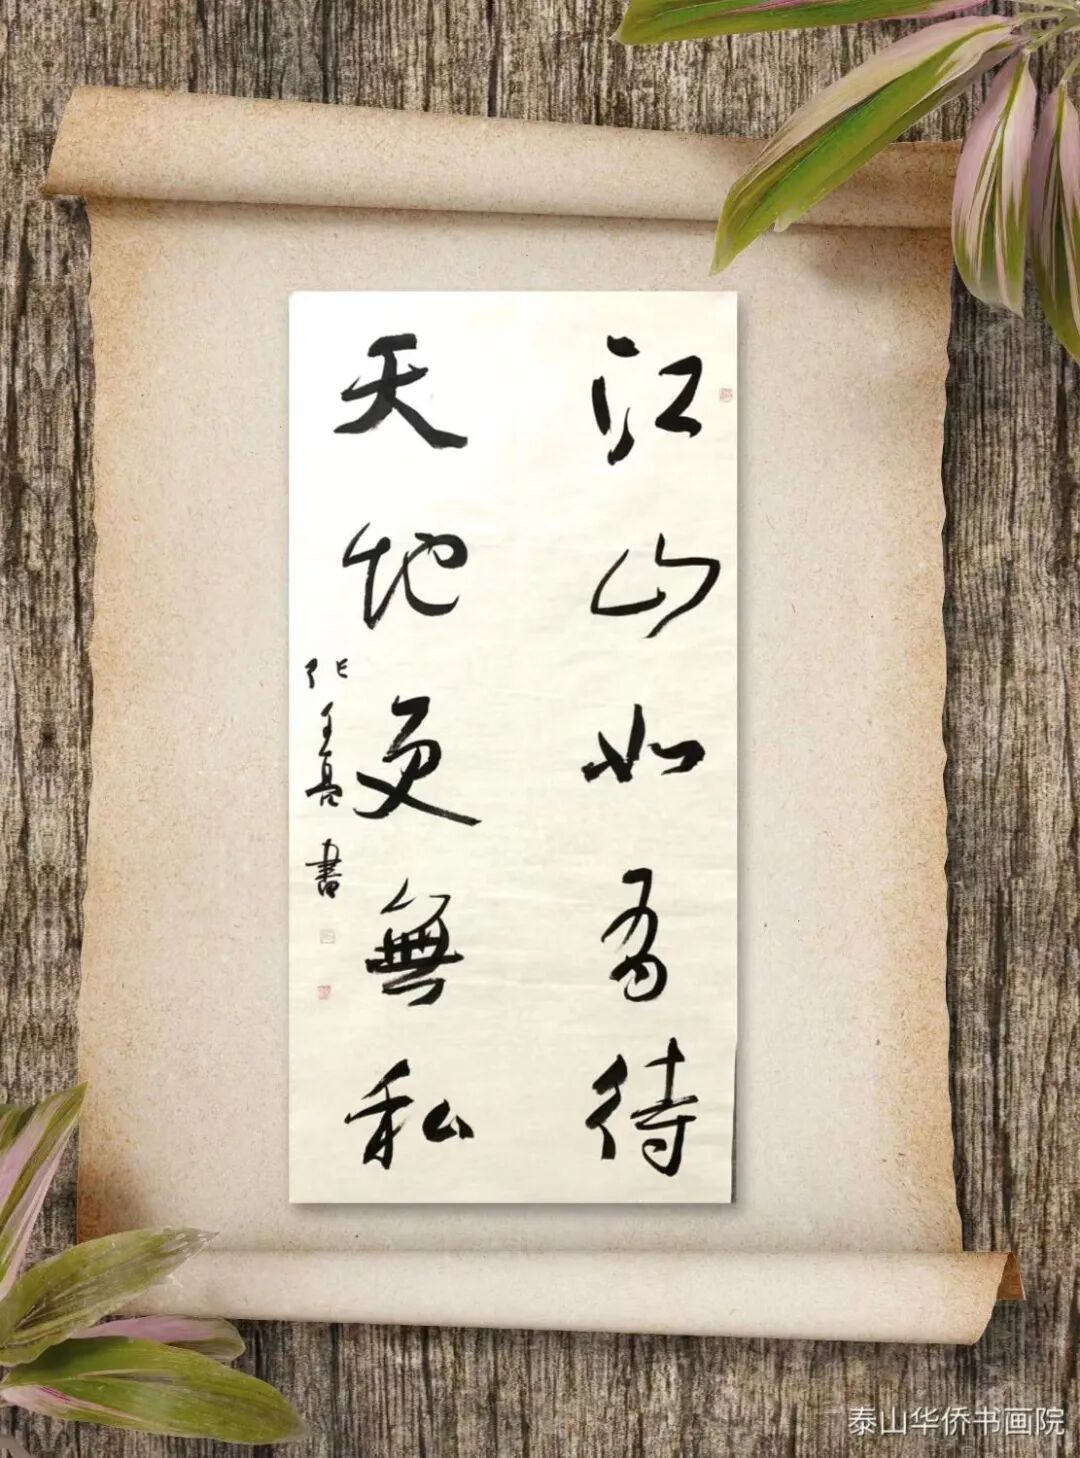 江山如有待
天地更無私
張玉亮書
泰山华侨书画院